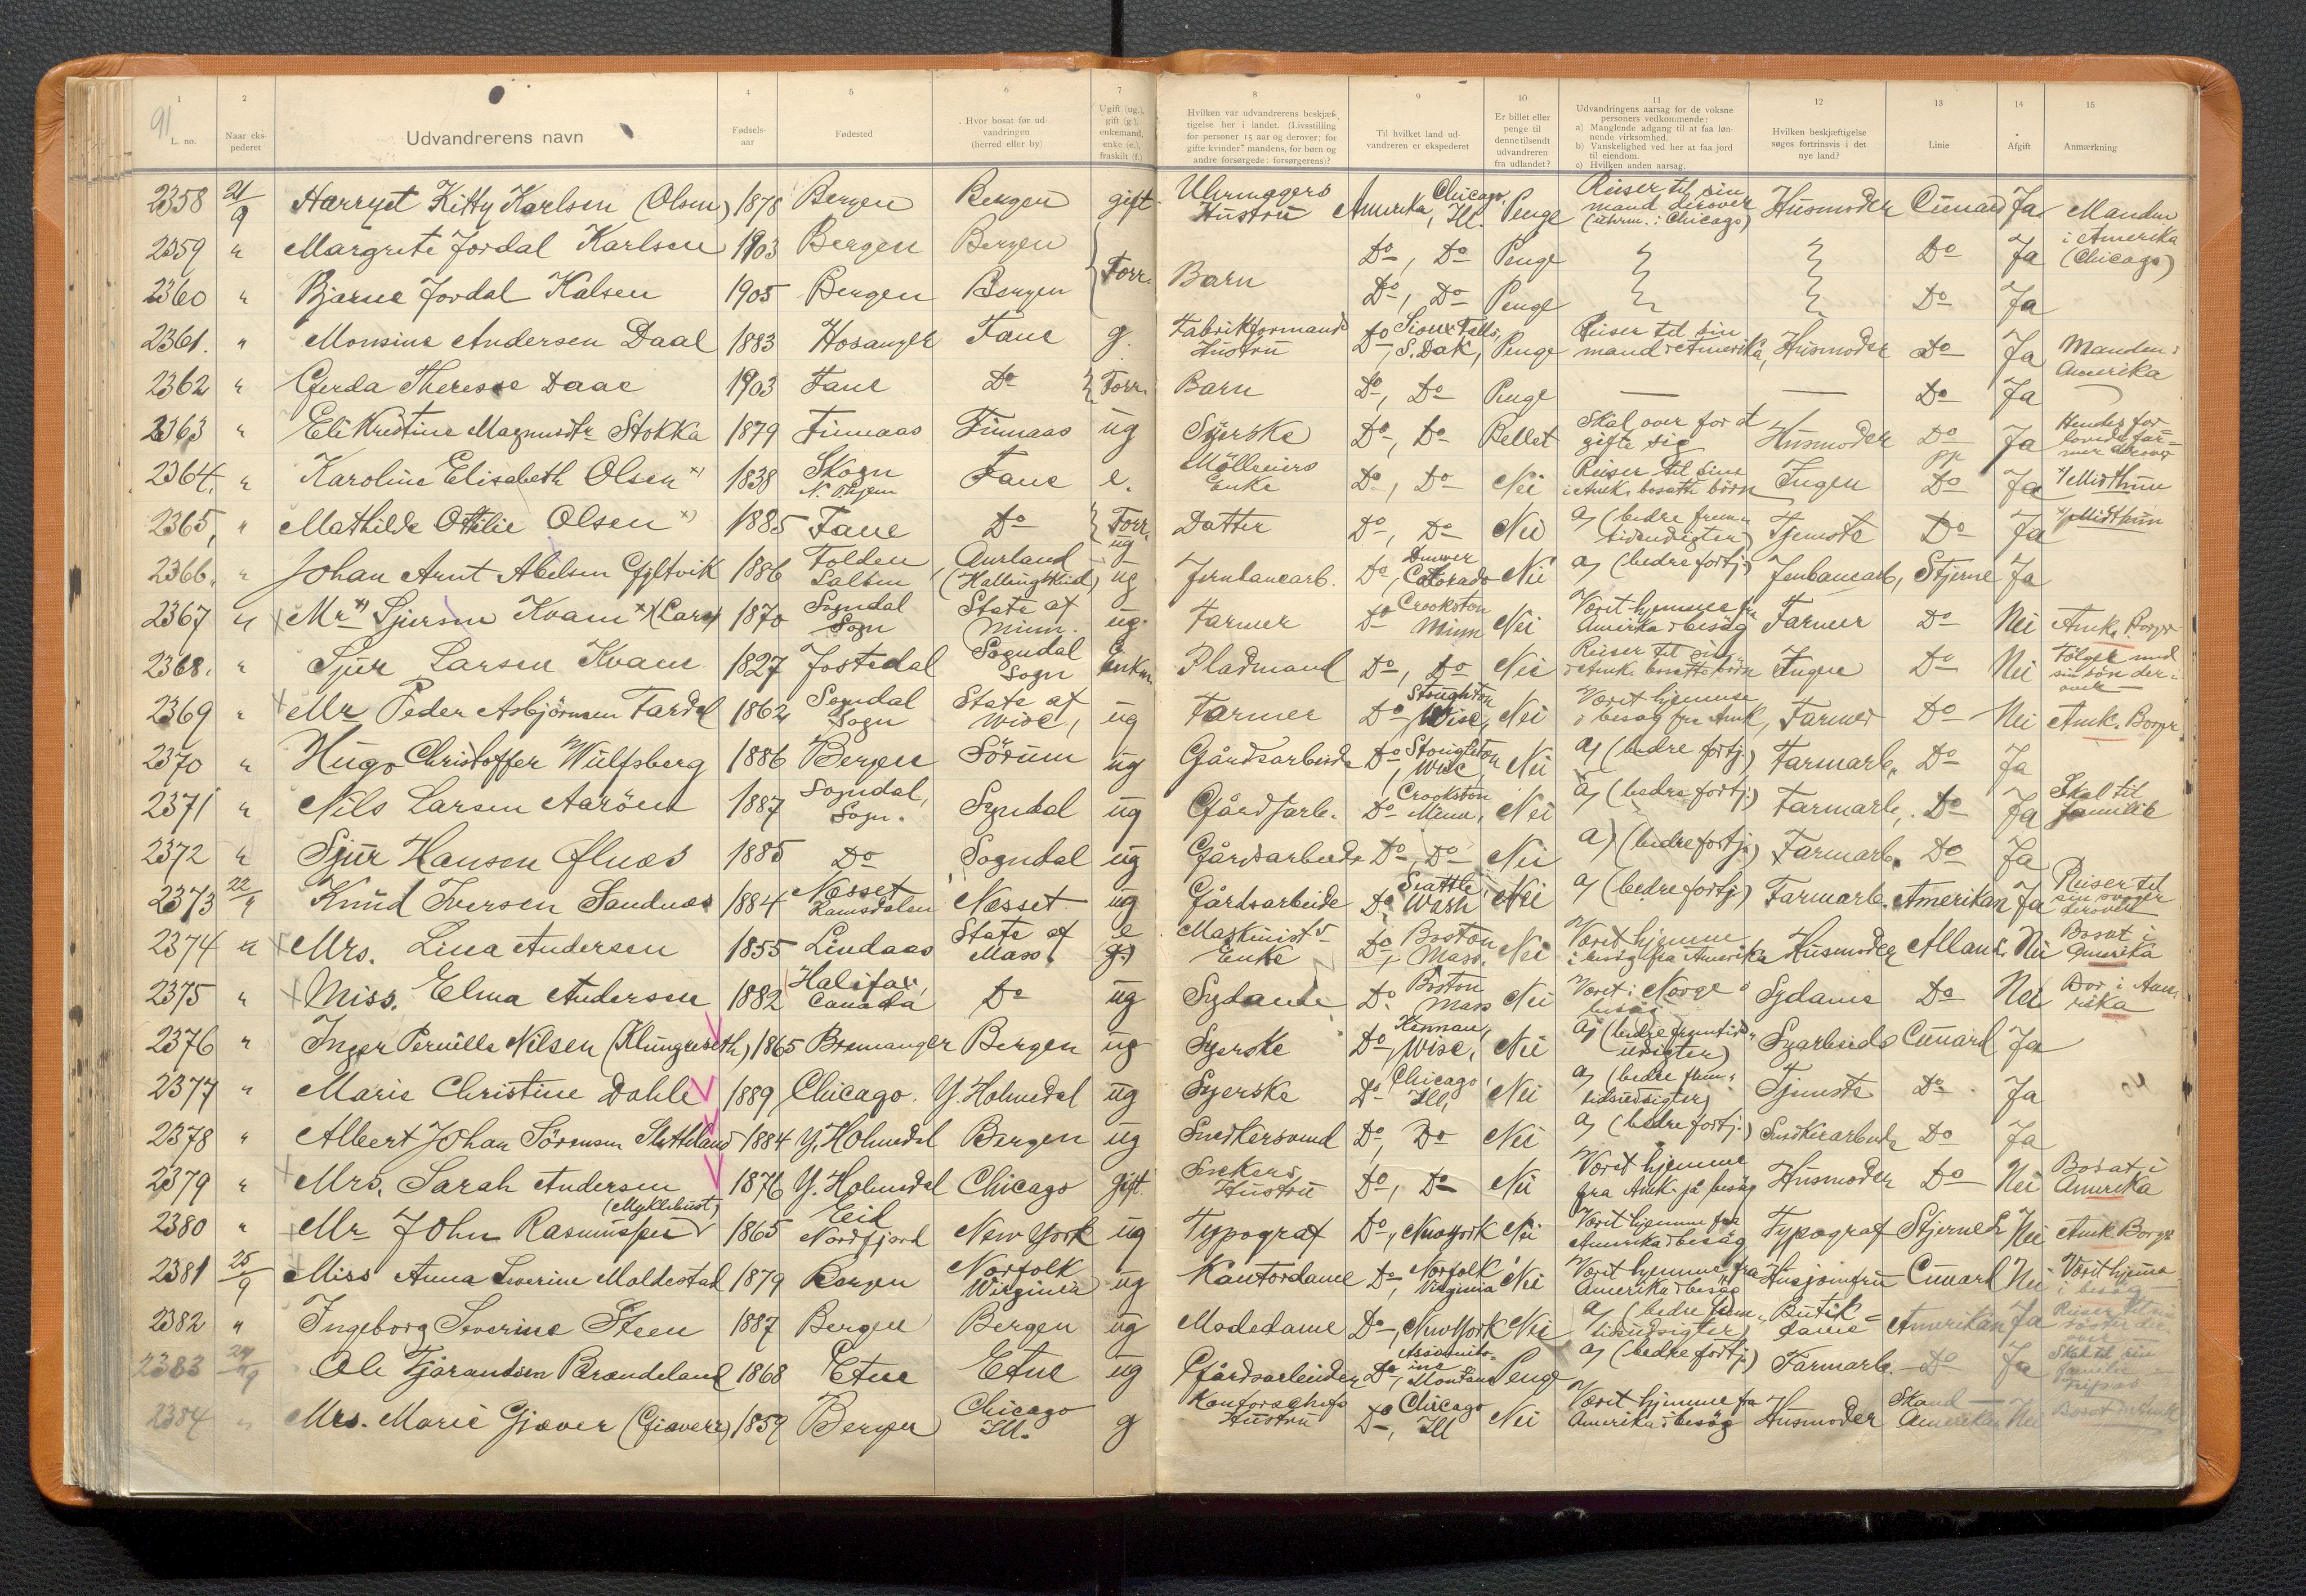 91
1 2 4 5 6 7 8 9 10 11 12 13 14 15
L. no.
Naar eks-
pederet
Udvandrerens navn
Fødsels-
aar
Fødested
Hvor bosat før ud-
vandringen
(herred eller by)
Ugift (ug.),
gift (g.),
enkemand,
enke (e.),
fraskilt (f.)
Hvilken var udvandrerens beskjæf-
tigelse her i landet. (Livsstilling
for personer 15 aar og derover; for
gifte kvinder: mandens, for børn og
andre forsørgede: forsørgerens)?
Til hvilket land ud-
vandreren er ekspederet
Er billet eller
penge til
denne tilsendt
udvandreren
fra udlandet?
Udvandringens aarsag for de voksne
personers vedkommende:
a) Manglende adgang til at faa løn-
nende virksomhed.
b) Vanskelighed ved her at faa jord
til eiendom.
c) Hvilken anden aarsag.
Hvilken beskjæftigelse
søges fortrinsvis i det
nye land?
Linie
Afgift
Anmærkning
2358 21/9 Harryet Kitty Karlsen (Olsen) 1878 Bergen Bergen gift Uhrmagers Hustru Amerika, Chicago, Ill. Penge Reiser til sin mand derover (uhrm. i Chicago) Husmoder Cunard Ja Manden i Amerika (Chicago)
2359 " Margrete Jordal Karlsen 1903 Bergen Bergen } Forr. Barn Do, Do Penge Do Ja
2360 " Bjarne Jordal Kalsen 1905 Bergen Bergen Do, Do Penge Do Ja
2361. " Monsine Andersen Daae 1883 Hosanger Fane g. Fabrikformands Hustru Do, Sioux Falls, S. Dak, Penge Reiser til sin mand i Amerika, Husmoder Do Ja Manden i Amerika
2362 " Gerda Therese Daae 1903 Fane Do } Forr. Barn Do, Do Penge — — Do Ja
2363 " Eli Kristine Magnusdtr Stokka 1879 Finnaas Finnaas ug Syerske Do, Do Bellet Skal over for at gifte sig Husmoder Do Ja Hendes for-
2364. " Karoline Elisabeth Olsen x) 1838 Skogn N. Thjem Fane e. Mölleiers Enke Do, Do Nei Reiser til sine i Amk. bosatte börn Ingen Do Ja x/ Midthun
2365, " Mathilde Ottilie Olsen x) 1885 Fane Do } Forr. ug Datter Do, Do Nei a) (bedre fremtidsudsigter) Tjeneste Do Ja x/ Midthun
2366. " Johan Arnt Abelsen Gjeltvik 1886 Folden Salten Aurland (Hallingskeid) ug Jernbanearb. Do, Denver Colorado Nei a) (bedre fortj.) Jernbanearb, Stjerne Ja
2367 " Mr x) Sjursen Kvam x) (Lars) 1870 Sogndal Sogn State of Minn. ug. Farmer Do Crookston Minn Nei Vært hjemme fra Amerika i besög Farmer Do Nei Amk. Borger
2368. " Sjur Larsen Kvam 1827 Jostedal Sogndal Sogn Enkm. Pladsmand Do, Do Nei Reiser til sine i Amk. bosatte börn Ingen Do Nei Fölger med sin sön der-over
2369 " Mr Peder Asbjörnsen Fardal 1862 Sogndal Sogn State of Wisc, ug Farmer Do Stoughton Wisc, Nei Været hjemme i besög fra Amk, Farmer Do Nei Amk. Borger
2370 " Hugo Christoffer Wülfsberg 1886 Bergen Sörum ug Gårdsarbeide Do Stoughton, Wisc, Nei a) (bedre fortj.) Farmarb. Do Ja
2371 " Nils Larsen Aaröen 1887 Sogndal, Sogn. Sogndal ug Gårdsarb. Do Crookston Minn, Nei a) (bedre fortj.) Farmarb, Do Ja Skal til familie
2372 " Sjur Hansen Ølnes 1885 Do Sogndal ug Gårdsarbeide Do, Do Nei a) (bedre fortj.) Farmarb. Do Ja
2373 22/9 Knud Iversen Sandnes 1884 Nesset Ramsdalen Nesset ug Gårdsarbeide Do Seattle, Wash Nei a) (bedre fortj.) Farmarb. Amerikan Ja Reiser til sin svoger derover
2374 " Mrs. Lina Andersen 1855 Lindaas State of Mass e Maskinists Enke Do, Boston Mass. Nei Været hjemme i besög fra Amerika Husmoder Allan L. Nei Bosat i Amerika
2375 " Miss. Elma Andersen 1882 Halifax, Canada Do ug Sydame Do Boston Mass Nei Været i Norge på besög Sydame Do Nei Bor i Amerika
2376 " Inger Pernille Nilsen (Klungreseth) 1865 Bremanger Bergen ug Syerske Do, Kennan, Wisc, Nei a) (bedre fremtidsudsigter) Syarbeide Cunard Ja
2377 " Marie Christine Dahle 1889 Chicago. Y. Holmedal ug Syerske Do Chicago, Ill, Nei a) (bedre fremtidsudsigter) Tjeneste Do Ja
2378 " Albert Johan Sörensen Sletteland 1884 Y. Holmedal Bergen ug Snedkersvend Do, Do Nei a) (bedre fortj.) Snedkerarbeide Do Ja
2379 " Mrs. Sarah Andersen 1876 Y. Holmedal Chicago gift. Snekers Hustru Do, Do Nei Været hjemme fra Amk. på besög Husmoder Do Nei Bosat i Amerika
2380 " Mr John Rasmussen (Myklebust) 1865 Eid Nordfjord New York ug Typograf Do, New York Nei Været hjemme fra Amerika i besög Typograf Stjerne L Nei Amk. Borger
2381 25/9 Miss Anna Severine Moldestad 1879 Bergen Norfolk Wirginia ug Kontordame Do Norfolk Virginia Nei Været hjemme fra Amerika i besög Husjomfru Cunard Nei Været hjemme i besög
2382 " Ingeborg Severine Steen 1887 Bergen Bergen ug Modedame Do, New York Nei a) (bedre fremtidsudsigter) Butik-dame Amerikan Ja Reiser til sin söster der-over
2383 24/9 Ole Tjerandsen Brændeland 1868 Etne Etne ug Gårdsarbeider Do, Montana Penge a) (bedre fortj.) Farmarb. Do Ja Skal til sin familie
2384 " Mrs. Marie Gjæver (Giæverr) 1859 Bergen Chicago Ill. g Kontorschefs Hustru Do, Chicago Ill Nei Været hjemme fra Amerika i besög Husmoder Skand— Amerika Nei Bosat i Amk